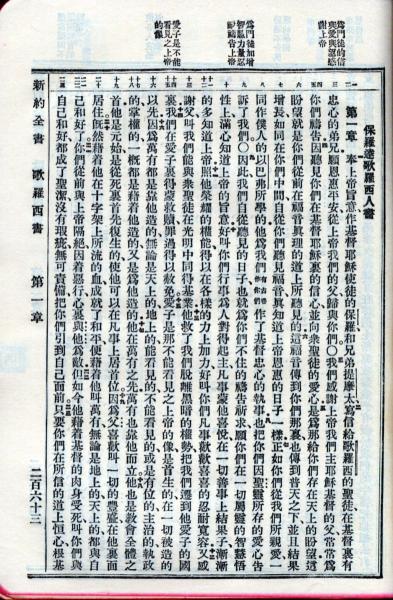 為門徒的信與愛與盼望感謝上帝
為門徒加增智慧力量懇切禱告上帝
愛子是不能看見之上帝的像
保羅達歌羅西人書
第一章 奉上帝旨意作基督耶穌使徒的保羅和兄弟提摩太寫信給歌羅西的聖徒在基督裏有
忠心的弟兄願恩惠平安從上帝我們的父歸與你們〇我們感謝上帝我們主耶穌基督的父常常為
你們禱告因聽見你們在基督耶穌裏的信心並向衆聖徒的愛心是為那給你們存在天上的盼望這
盼望就是你們從前在福音真理的道上所聽見的這福音傳到你們那裏也傳到普天之下並且結果
增長如同在你們中間自從你們聽見福音真知道上帝恩惠的日子一樣正如你們從我們所親愛一
同作僕人的以巴弗所學的他為我們有古卷作你們作了基督忠心的執事也把你們因聖靈所存的愛心告
訴了我們〇因此我們自從聽見的日子也就為你們不住的禱告祈求願你們在一切屬靈的智慧悟
性上滿心知道上帝的旨意好叫你們行事為人對得起主凡事蒙他喜悅在一切善事上結果子漸漸
的多知道上帝照他榮耀的權能得以在各樣的力上加力好叫你們凡事歡歡喜喜的忍耐寬容又感
謝父叫我們能與衆聖徒在光明中同得基業他救了我們脫離黑暗的權勢把我們遷到他愛子的國
裏我們在愛子裏得蒙救贖罪過得以赦免愛子是那不能看見之上帝的像是首生的在一切被造的
以先因為萬有都是靠他造的無論是天上的地上的能看見的不能看見的或是有位的主治的執政
的掌權的一概都是藉着他造的又是為他造的他在萬有之先萬有也靠他而立他也是教會全體之
首他是元始是從死裏首先復生的使他可以在凡事上居首位因為父喜歡叫一切的豐盛在他裏面
居住既然藉着他在十字架上所流的血成就了和平便藉着他叫萬有無論是地上的天上的都與自
己和好了你們從前與上帝隔絕因着惡行心裏與他為敵但如今他藉着基督的肉身受死叫你們與
自己和好都成了聖潔沒有瑕疵無可責備把你們引到自己面前只要你們在所信的道上恒心根基
新約全書 歌羅西書 第一章 二百六十三